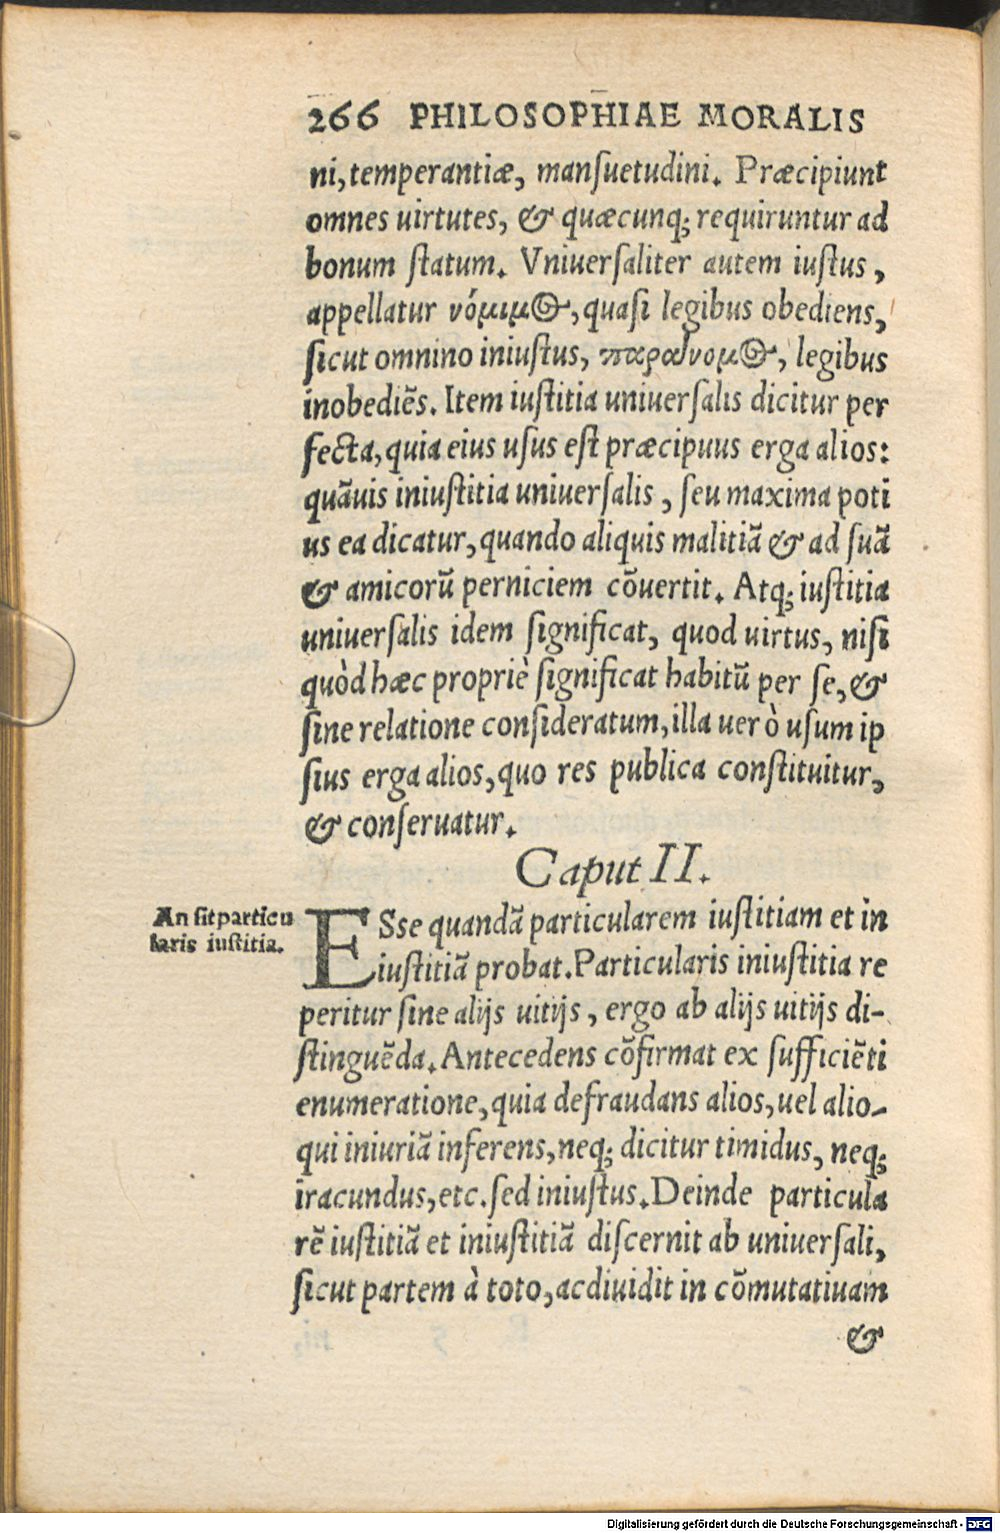 266 PHILOSOPHIAE MORALIS
ni, temperantiæ, mansuetudini. Præcipiunt
omnes uirtutes, & quæcunq; requiruntur ad
bonum statum. Vniuersaliter autem iustus,
appellatur νόμιμος, quasi legibus obediens,
sicut omnino iniustus, παράνομος, legibus
inobediẽs. Item iustitia uniuersalis dicitur per
fecta, quia eius usus est præcipuus erga alios:
quãuis iniustitia uniuersalis, seu maxima poti
us ea dicatur, quando aliquis malitiã & ad suã
& amicorũ perniciem cõuertit. Atq; iustitia
uniuersalis idem significat, quod uirtus, nisi
quòd hæc propriè significat habitũ per se, &
sine relatione consideratum, illa uerò usum ip
sius erga alios, quo res publica constituitur,
& conseruatur.
Caput II.
An sit particu
laris iustitia.
ESse quandã particularem iustitiam et in
iustitiã probat. Particularis iniustitia re
peritur sine alijs uitijs, ergo ab alijs uitijs di-
stinguẽda. Antecedens cõfirmat ex sufficiẽti
enumeratione, quia defraudans alios, uel alio-
qui iniuriã inferens, neq; dicitur timidus, neq;
iracundus, etc. sed iniustus. Deinde particula
rẽ iustitiã et iniustitiã discernit ab uniuersali,
sicut partem à toto, ac diuidit in cõmutatiuam
&
Digitalisierung gefördert durch die Deutsche Forschungsgemeinschaft - DFG